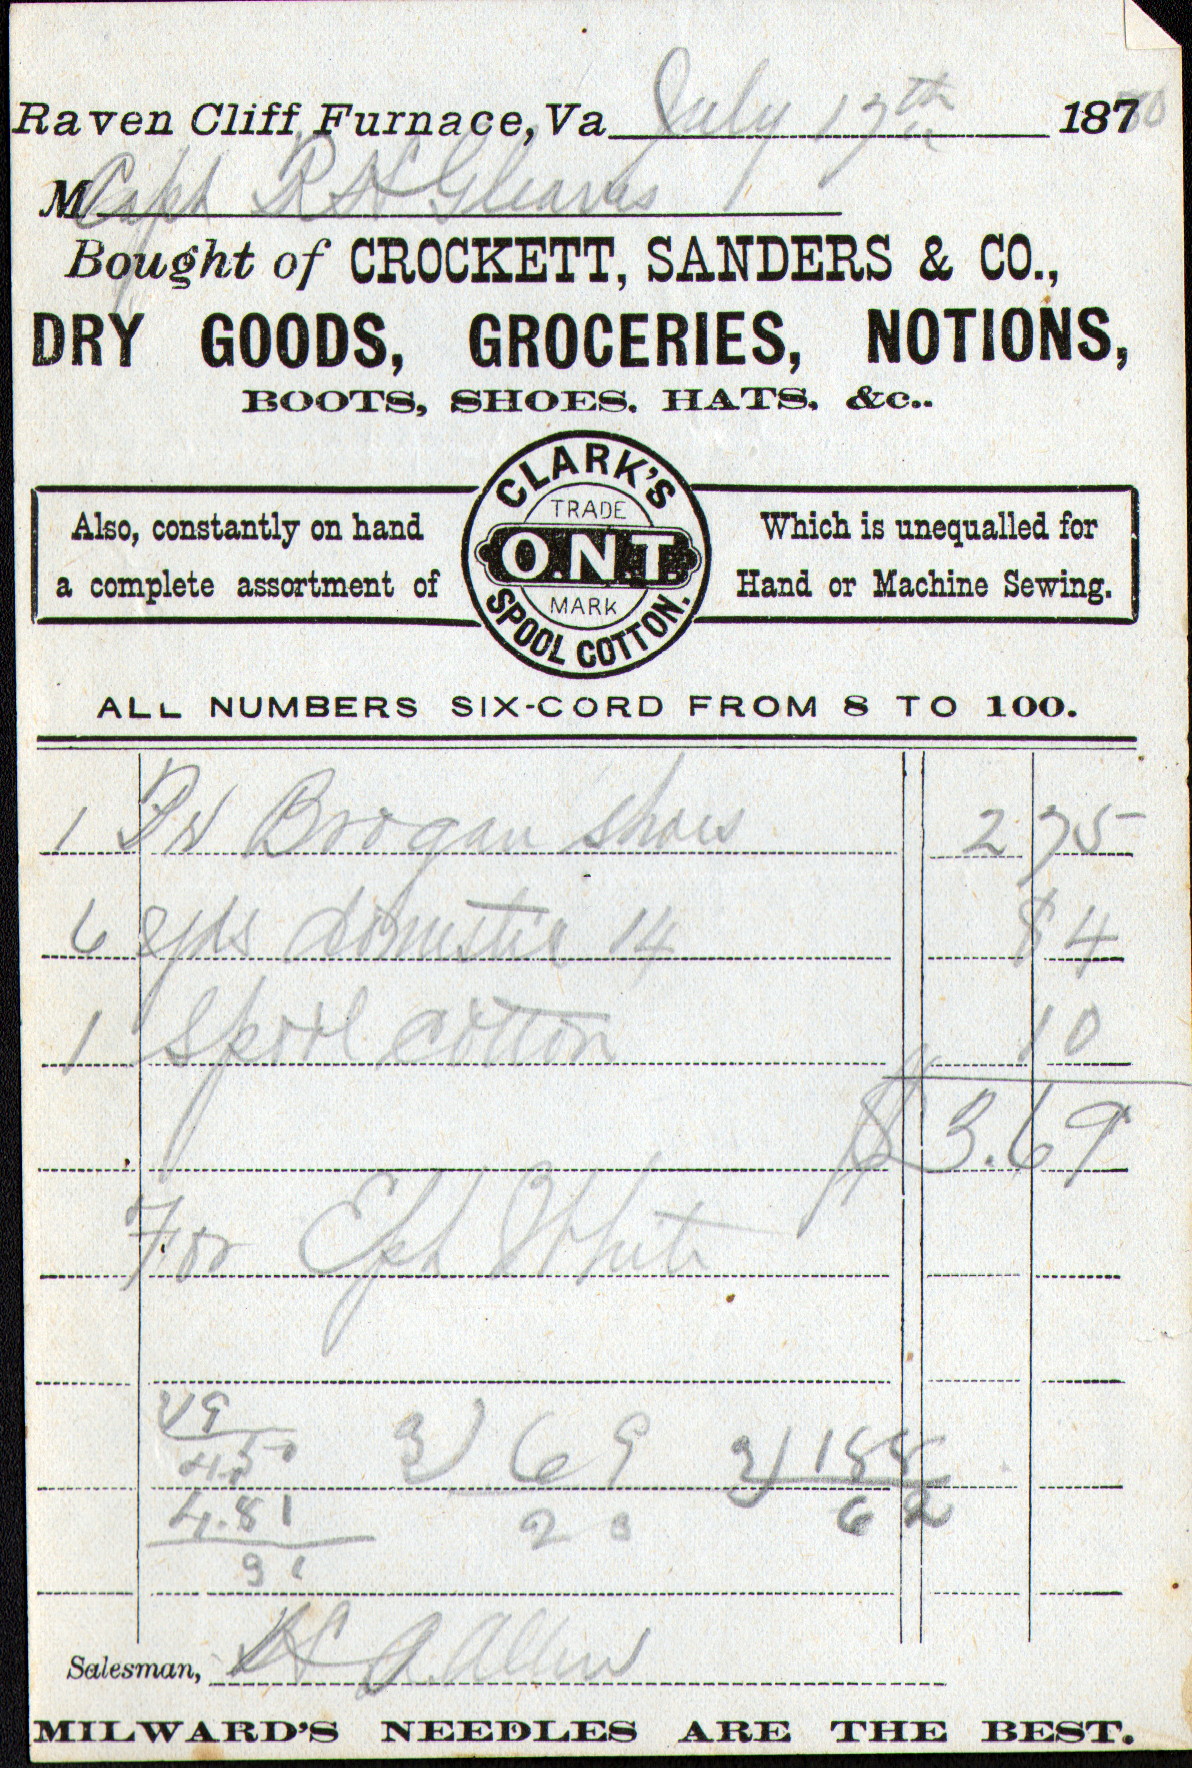 Raven Cliff Furnace, Va July 17th 18780
M Capt R H Gleaves
Bought of CROCKETT, SANDERS & CO.,
DRY GOODS, GROCERIES, NOTIONS,
BOOTS, SHOES, HATS, &c..
CLARK'S
TRADE
O.N.T.
MARK
SPOOL COTTON.
Also, constantly on hand
a complete assortment of
Which is unequalled for
Hand or Machine Sewing.
ALL NUMBERS SIX-CORD FROM 8 TO 100.
1 Pr Brogan Shoes 2 75
6 yds domestic 14 84
1 Spool cotton 10
$3.69
For Eph White
3) 69
23
3) 188
62
4.81
Salesman, H A Allen
MILWARD'S NEEDLES ARE THE BEST.